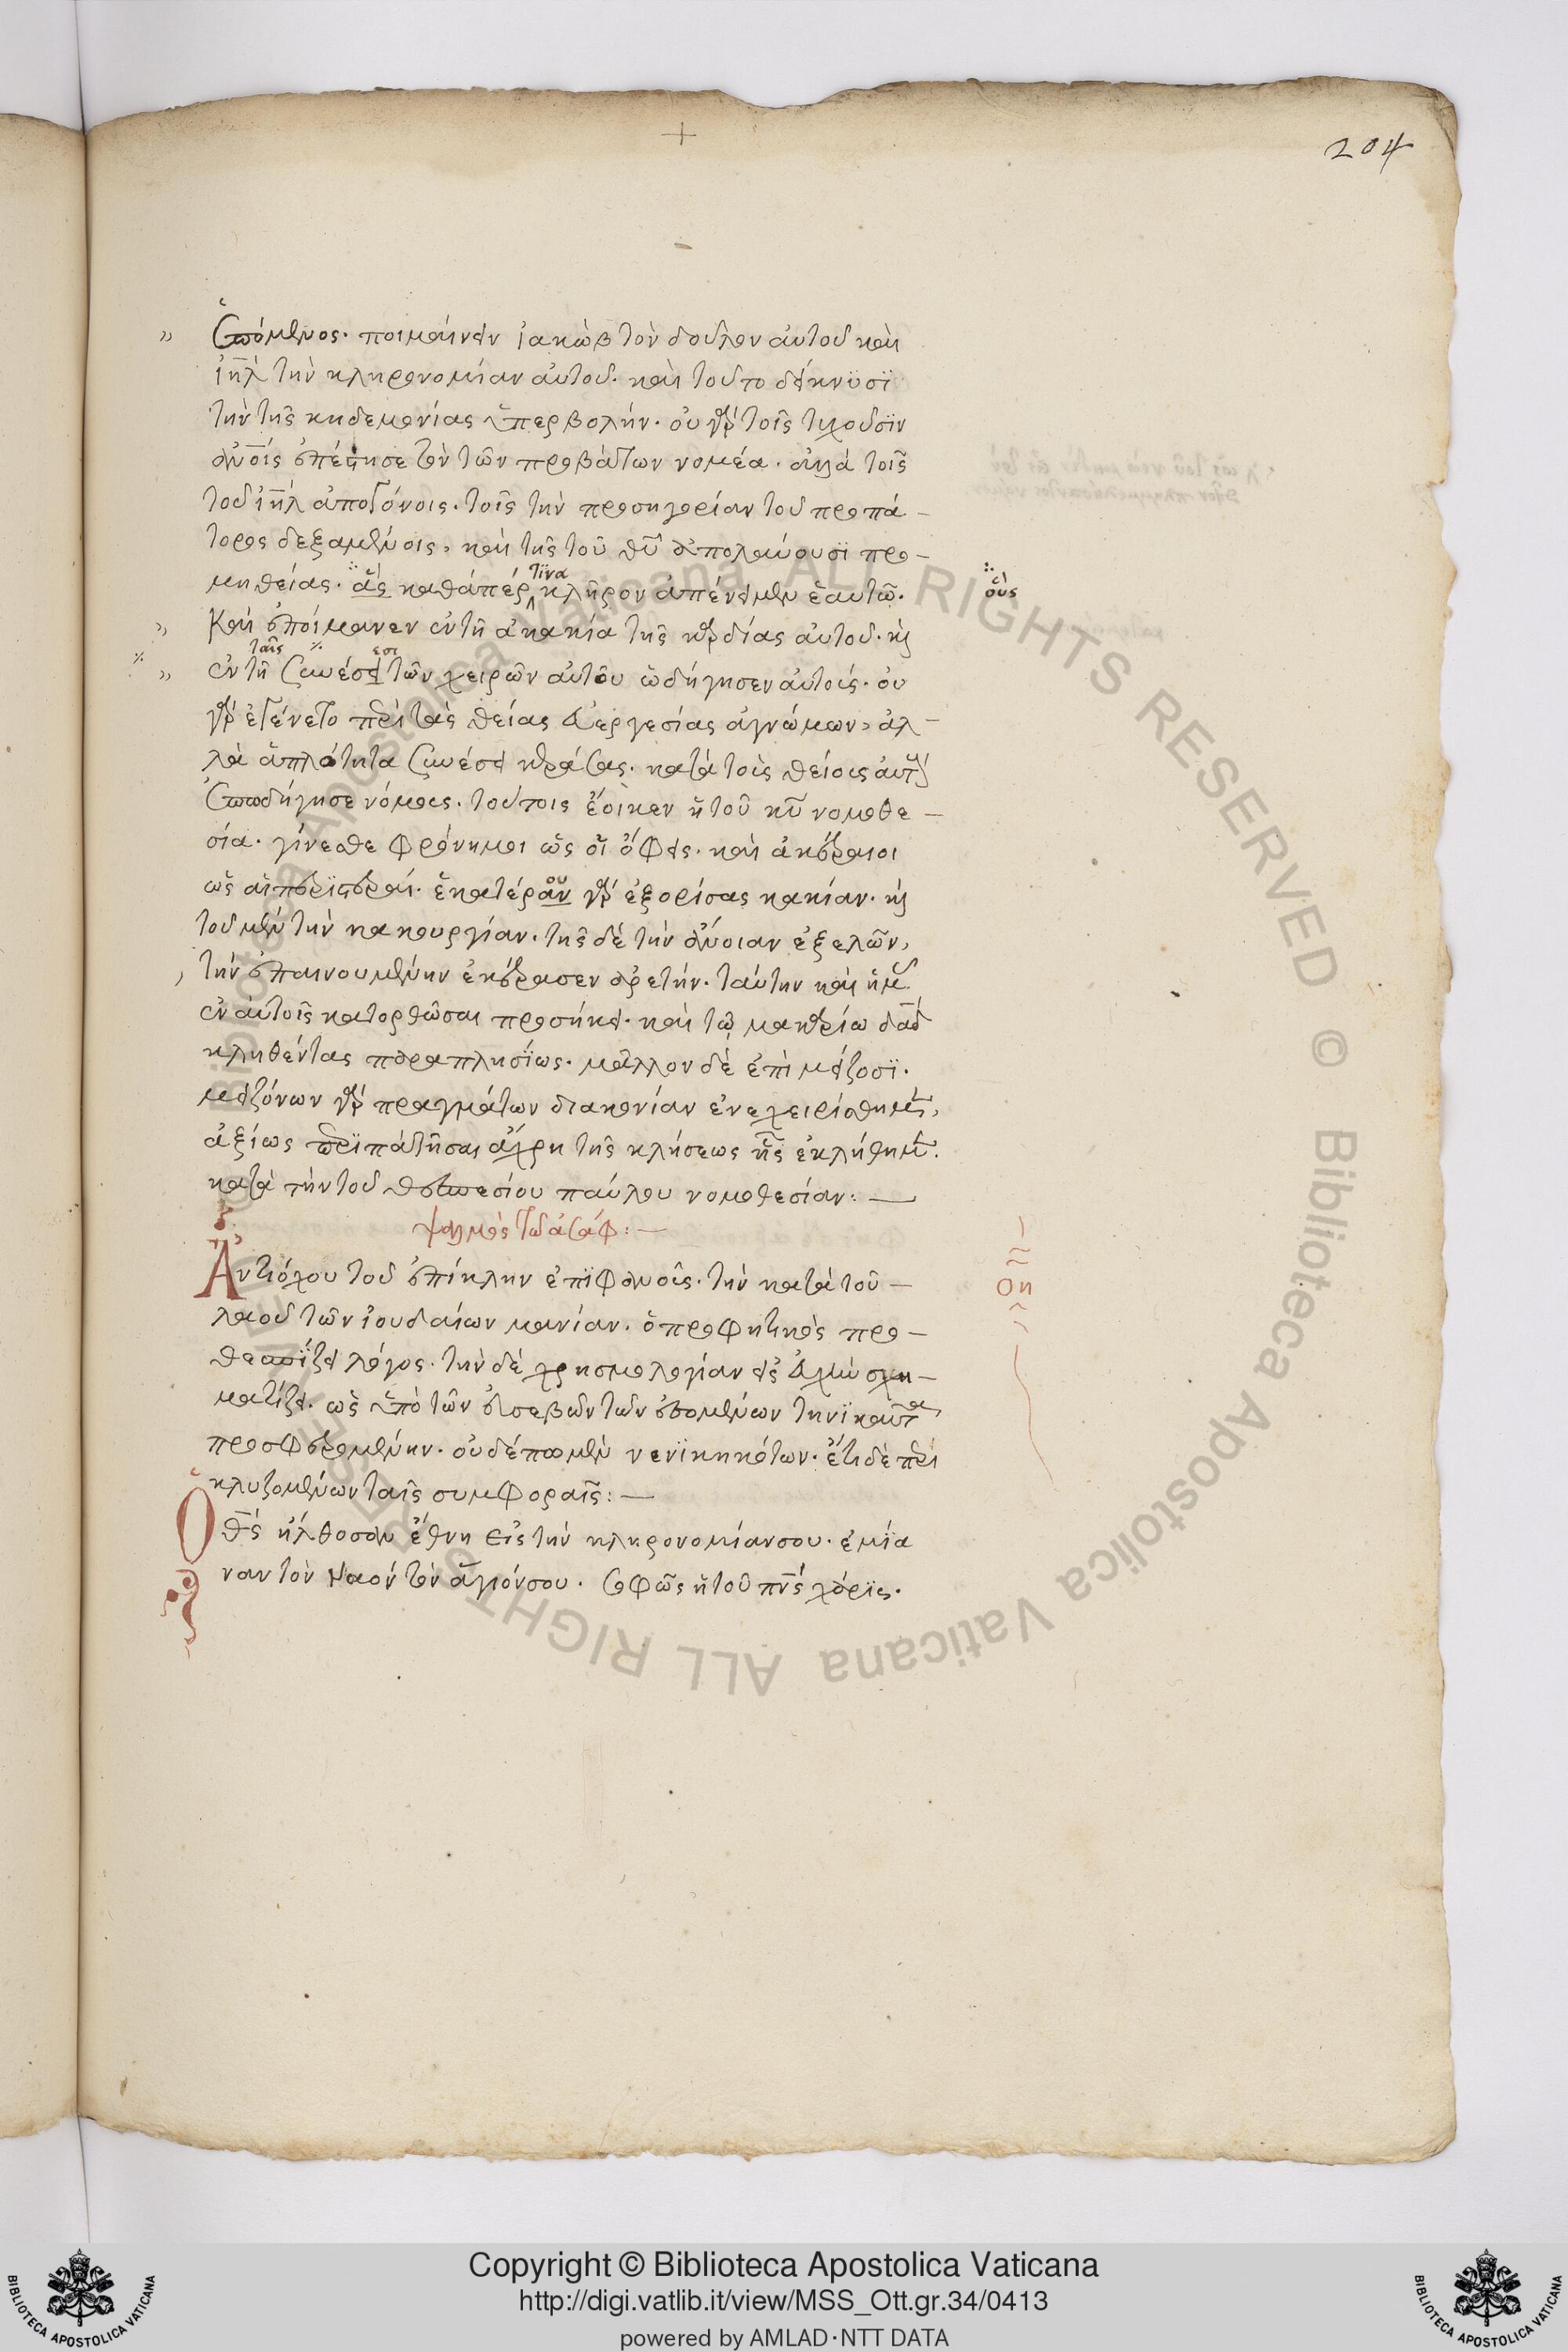 204
ἑπόμενος. ποιμαίνειν ἰακὼβ τὸν δοῦλον αὐτοῦ καὶ
ἰη̅λ τὴν κληρονομίαν αὐτοῦ. καὶ τοῦτο δείκνυσι
τὴν τῆς κηδεμονίας ὑπερβολήν. οὐ γὰρ τοῖς τυχοῦσιν
α̅ν̅ο̅ι̅ς ἐπέστησε τὸν τῶν προβάτων νομέα. ἀλλὰ τοῖς
τοῦ ἰη̅λ ἀπογόνοις. τοῖς τὴν προσηγορίαν τοῦ προπά-
τορος δεξαμένοις, καὶ τῆς τοῦ θ̅υ̅ ἀπολαύουσι προ-
μηθείας. ἃς καθάπέρ τινα κλῆρον ἀπένειμεν ἑαυτῶ. οὓς
Καὶ ἐποίμανεν ἐν τῆ ἀκακία τῆς καρδίας αὐτοῦ. κ̀
ταῖς εσι
ἐν τῆ συνέσει τῶν χειρῶν αὐτοῦ ὡδήγησεν αὐτούς. οὐ
γὰρ ἐγένετο περὶ τὰς θείας εὐεργεσίας ἀγνώμων, ἀλ-
λὰ ἁπλότητα συνέσει κεράσας. κατὰ τοὺς θείους αὐτοὺς
ἐποδήγησε νόμους. τούτοις ἔοικεν ἡ τοῦ κ̅υ̅ νομοθε-
σία. γίνεσθε φρόνιμοι ὡς οἱ ὄφεις. καὶ ἀκέραιοι
ὡς αἱ περιστεραί. ἑκατέραν γὰρ ἐξορίσας κακίαν. κ̀
τοῦ μὲν τὴν κακουργίαν. τῆς δὲ τὴν ἄνοιαν ἐξελῶν,
τὴν ἐπαινουμένην ἐκέρασεν ἀρετήν. ταύτην καὶ ἡμᾶς
ἐν αὐτοῖς κατορθῶσαι προσήκει. καὶ τῶ μακαρίω δα̅δ
κληθέντας παραπλησίως. μᾶλλον δὲ ἐπὶ μείζοσι.
μειζόνων γὰρ πραγμάτων διακονίαν ἐνεχειρίσθημεν,
ἀξίως περιπατῆσαι ἄχρι τῆς κλήσεως ἧς ἐκλήθημεν.
κατὰ τὴν τοῦ θεσπεσίου παύλου νομοθεσίαν: —
ψαλμὸς τῶ ἀσάφ: —
Ἀντιόχου τοῦ ἐπίκλην ἐπιφανοῦς. τὴν κατὰ τοῦ — οη
λαοῦ τῶν ἰουδαίων μανίαν. ὁ προφητικὸς προ-
θεσπίζει λόγος. τὴν δὲ χρησμολογίαν εἰς εὐχὴν σχη-
ματίζει. ὡς ὑπὸ τῶν εὐσεβῶν τῶν ἐσομένων τηνικαῦτα
προσφερομένην. οὐδέπω μὲν νενικηκότων. ἔτι δὲ περι
κλυζομένων ταῖς συμφοραῖς: —
Ὁ θ̅ς ἤλθοσαν ἔθνη εἰς τὴν κληρονομίαν σου. ἐμία
ναν τὸν ναὸν τὸν ἅγιόν σου. σοφῶς ἡ τοῦ π̅ν̅ς χάρις.
Copyright © Biblioteca Apostolica Vaticana
http://digi.vatlib.it/view/MSS_Ott.gr.34/0413
powered by AMLAD·NTT DATA